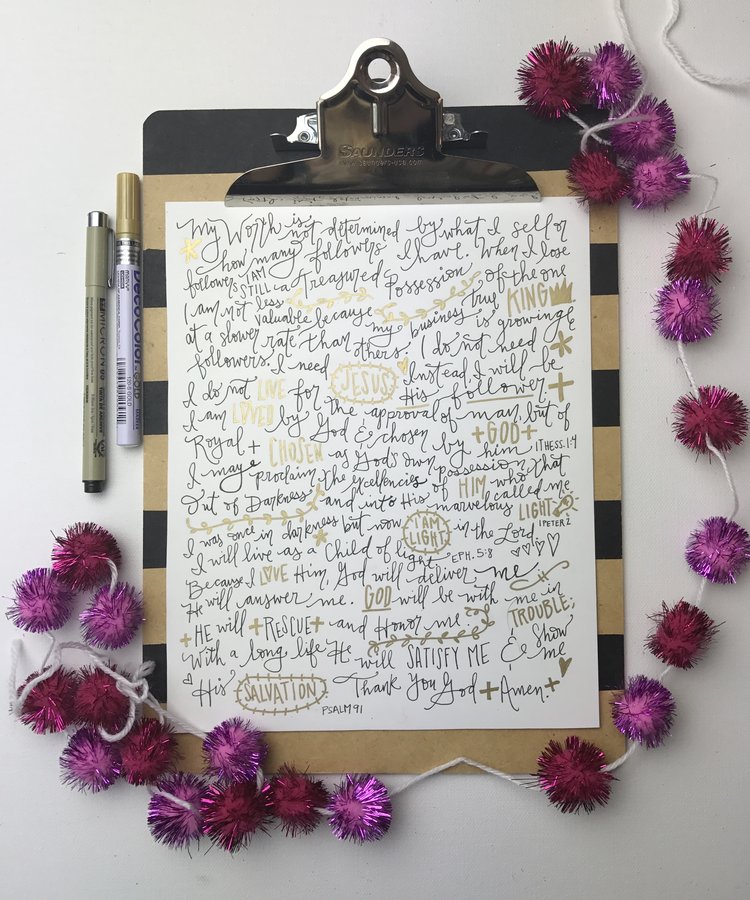 SAUNDERS
www.saunders-usa.com
My Worth is not determined by what I sell or
how many followers I have. When I lose
followers I AM STILL a Treasured Possession of the one
I am not less valuable because my business is growing true KING
at a slower rate than others. I do not need
followers. I need JESUS. Instead I will be His follower
I do not LIVE for the approval of man, but of
I am LOVED by God & chosen by him +GOD+ 1 THESS. 1:4
Royal + CHOSEN as God's own possession, that
I may proclaim the excellencies of HIM who called me
Out of Darkness and into His marvelous LIGHT 1 PETER 2
I was once in darkness but now I AM LIGHT in the Lord
I will live as a Child of light EPH. 5:8
Because I LOVE Him, God will deliver me
He will answer me. GOD will be with me in TROUBLE,
+HE will +RESCUE+ and Honor me.
With a long life He will SATISFY ME & Show me
His SALVATION. Thank You God + Amen. +
PSALM 91
MICRON 05
DecoColor
GOLD